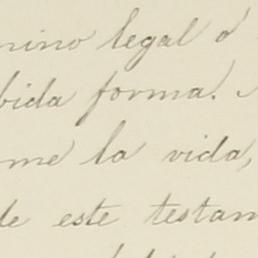 mino legal ó
bida forma.
me la vida,
de este testam